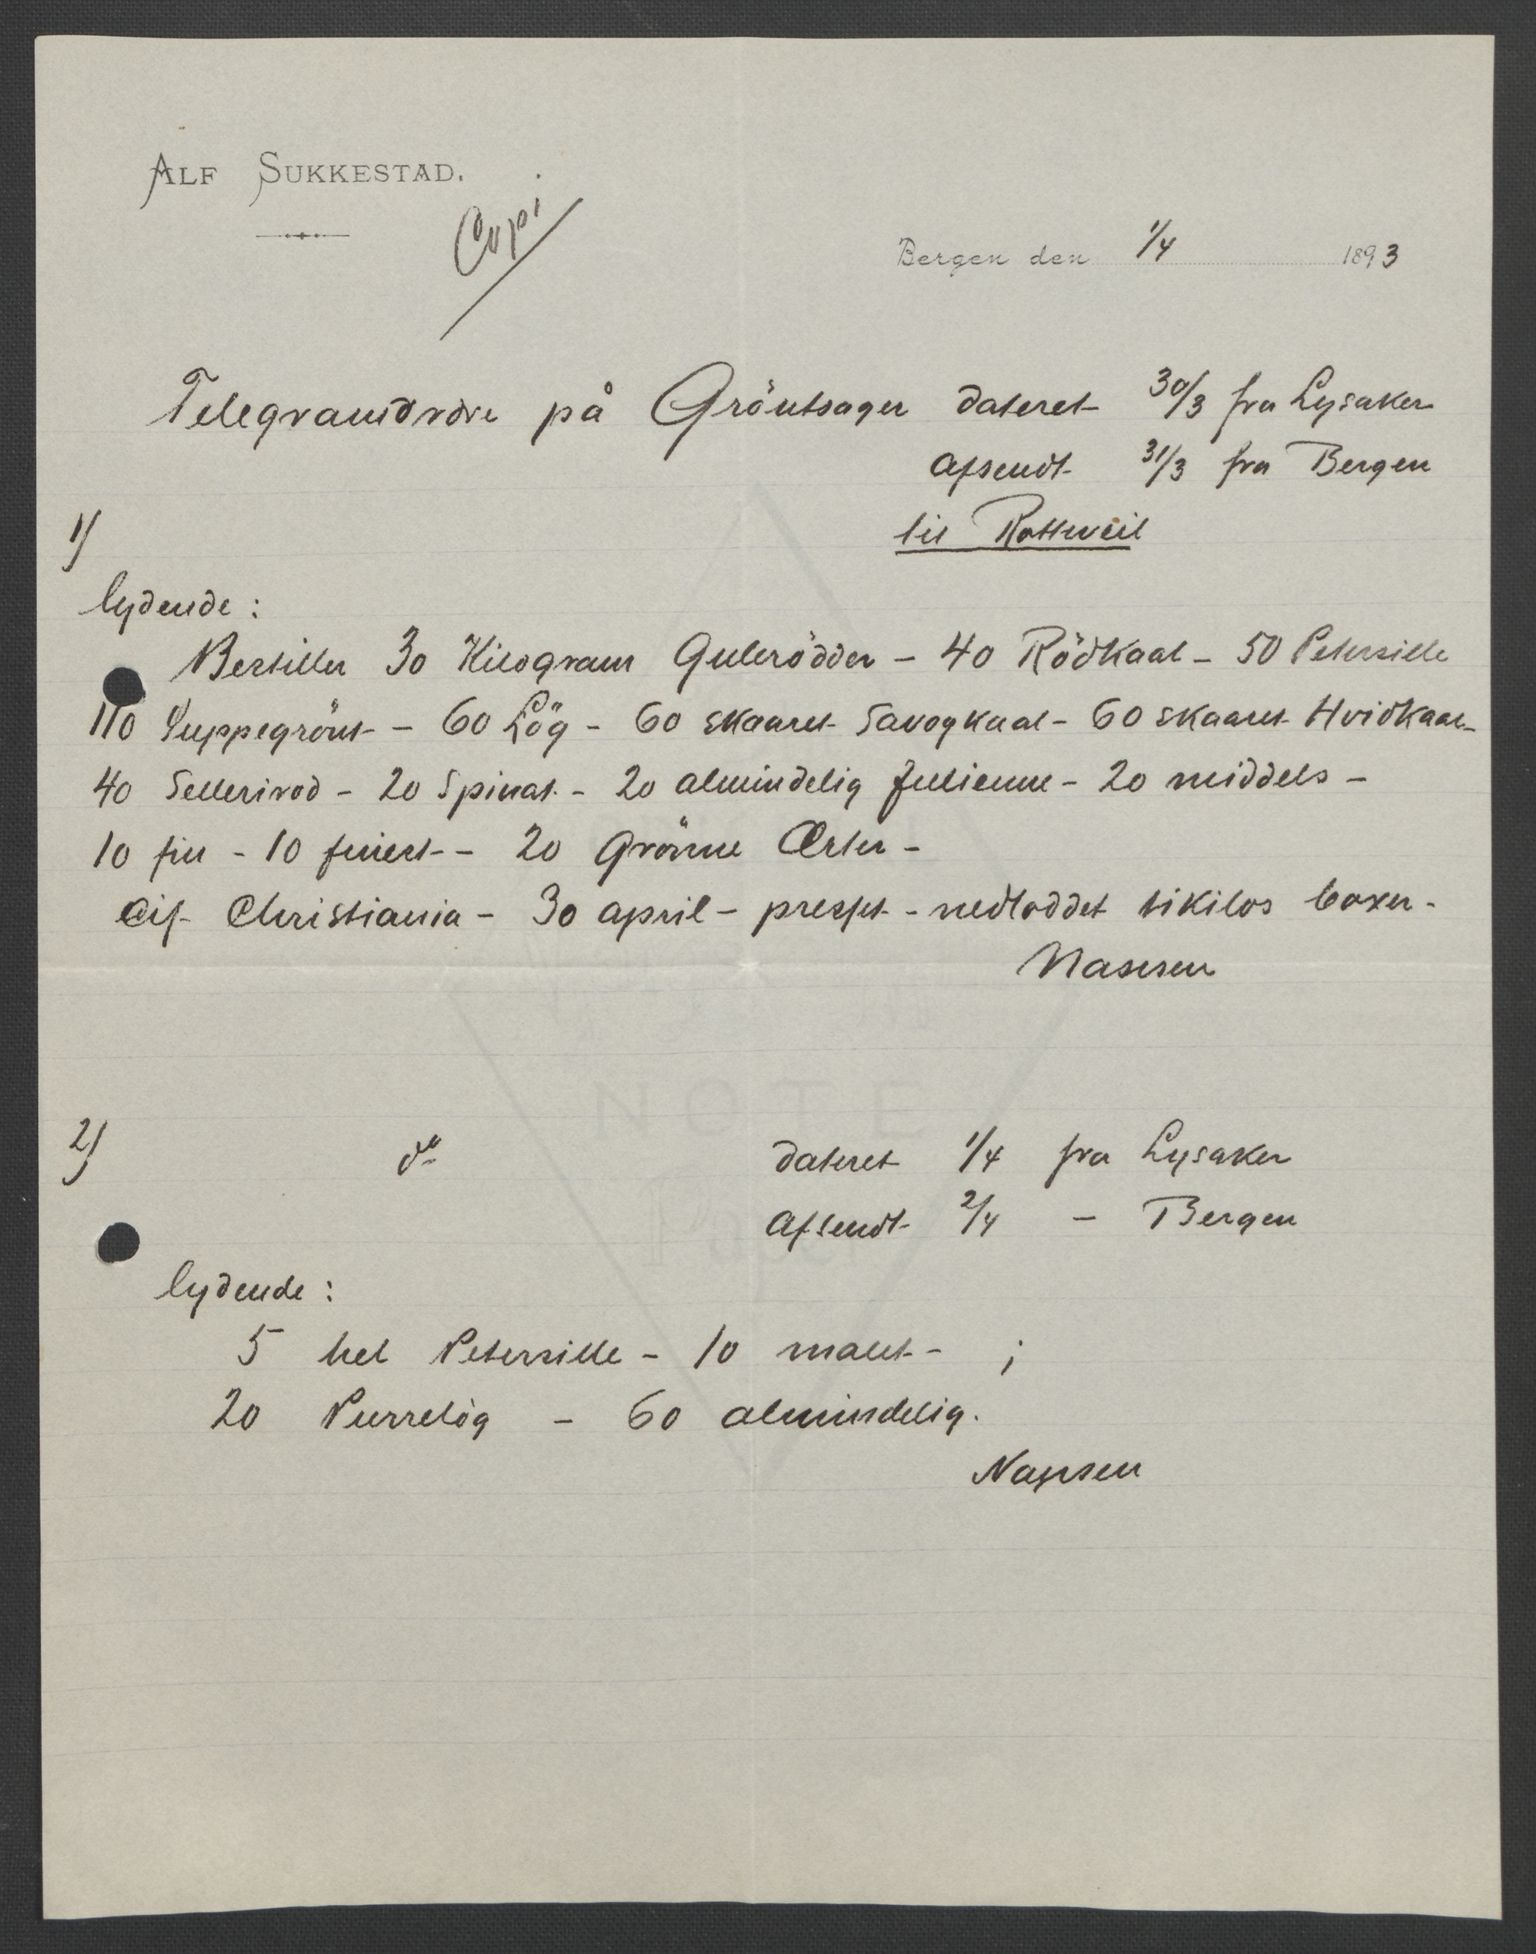 ALF SUKKESTAD.
Copi
Bergen den 1/4 1893
Telegramordre på Gröntsager dateret 30/3 fra Lysaker
afsendt 31/3 fra Bergen
til Rottweil
1)
lydende:
Bestiller 30 Kilogram Gulerödder - 40 Rödkaal - 50 Petersille
110 Suppegrönt - 60 Lög - 60 skaaret Savoykaal - 60 skaaret Hvidkaal -
40 Sellerirod - 20 Spinat - 20 almindelig Julienne - 20 middels -
10 fin - 10 finest - 20 Grönne Ærter -
cif Christiania - 30 april - presset - nedloddet tikilos boxer -
Nansen
2)
do dateret 1/4 fra Lysaker
afsendt 2/4 - Bergen
lydende:
5 hel Petersille - 10 malet - ;
20 Purrelög - 60 almindelig.
Nansen
NOTE